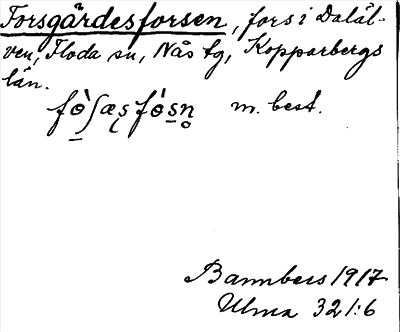 Forsgärdesforsen, fors i Daläl-
ven, Floda sn, Nås tg, Kopparbergs
län.
m. best.
Bannbers 1917
Ulma 321:6